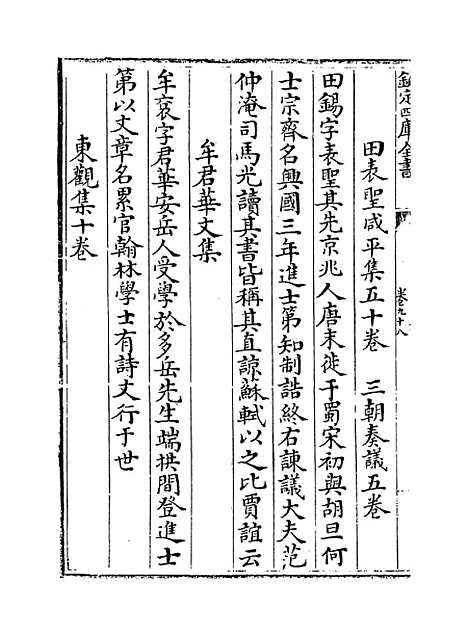 欽定四庫全書
卷九十八
田表聖咸平集五十卷　三朝奏議五卷
田錫字表聖其先京兆人唐末徙于蜀宋初與胡旦何
士宗齊名興國三年進士第知制誥終右諫議大夫范
仲淹司馬光讀其書皆稱其直諒蘇軾以之比賈誼云
牟君華文集
牟袞字君華安岳人受學於多岳先生端拱間登進士
第以文章名累官翰林學士有詩文行于世
東觀集十卷